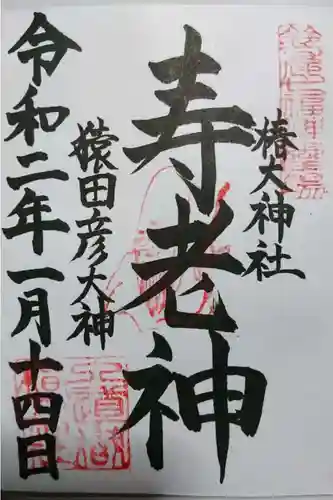 椿大神社
寿老神
猿田彦大神
令和二年一月十四日